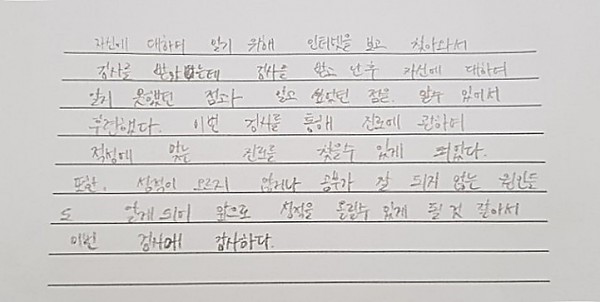 자신에 대하여 알기 위해 인터넷을 보고 찾아와서
검사를 받았는데 검사를 받고 난 후 자신에 대하여
알지 못했던 점과 알고 있었던 점을 알수 있어서
후련했다. 이번 검사를 통해 진로에 관하여
적성에 맞는 진로를 찾을수 있게 되었다.
또한, 성적이 오르지 않거나 공부가 잘 되지 않는 원인들
도 알게 되며 앞으로 성적을 올릴수 있게 될 것 같아서
이번 검사에 감사하다.